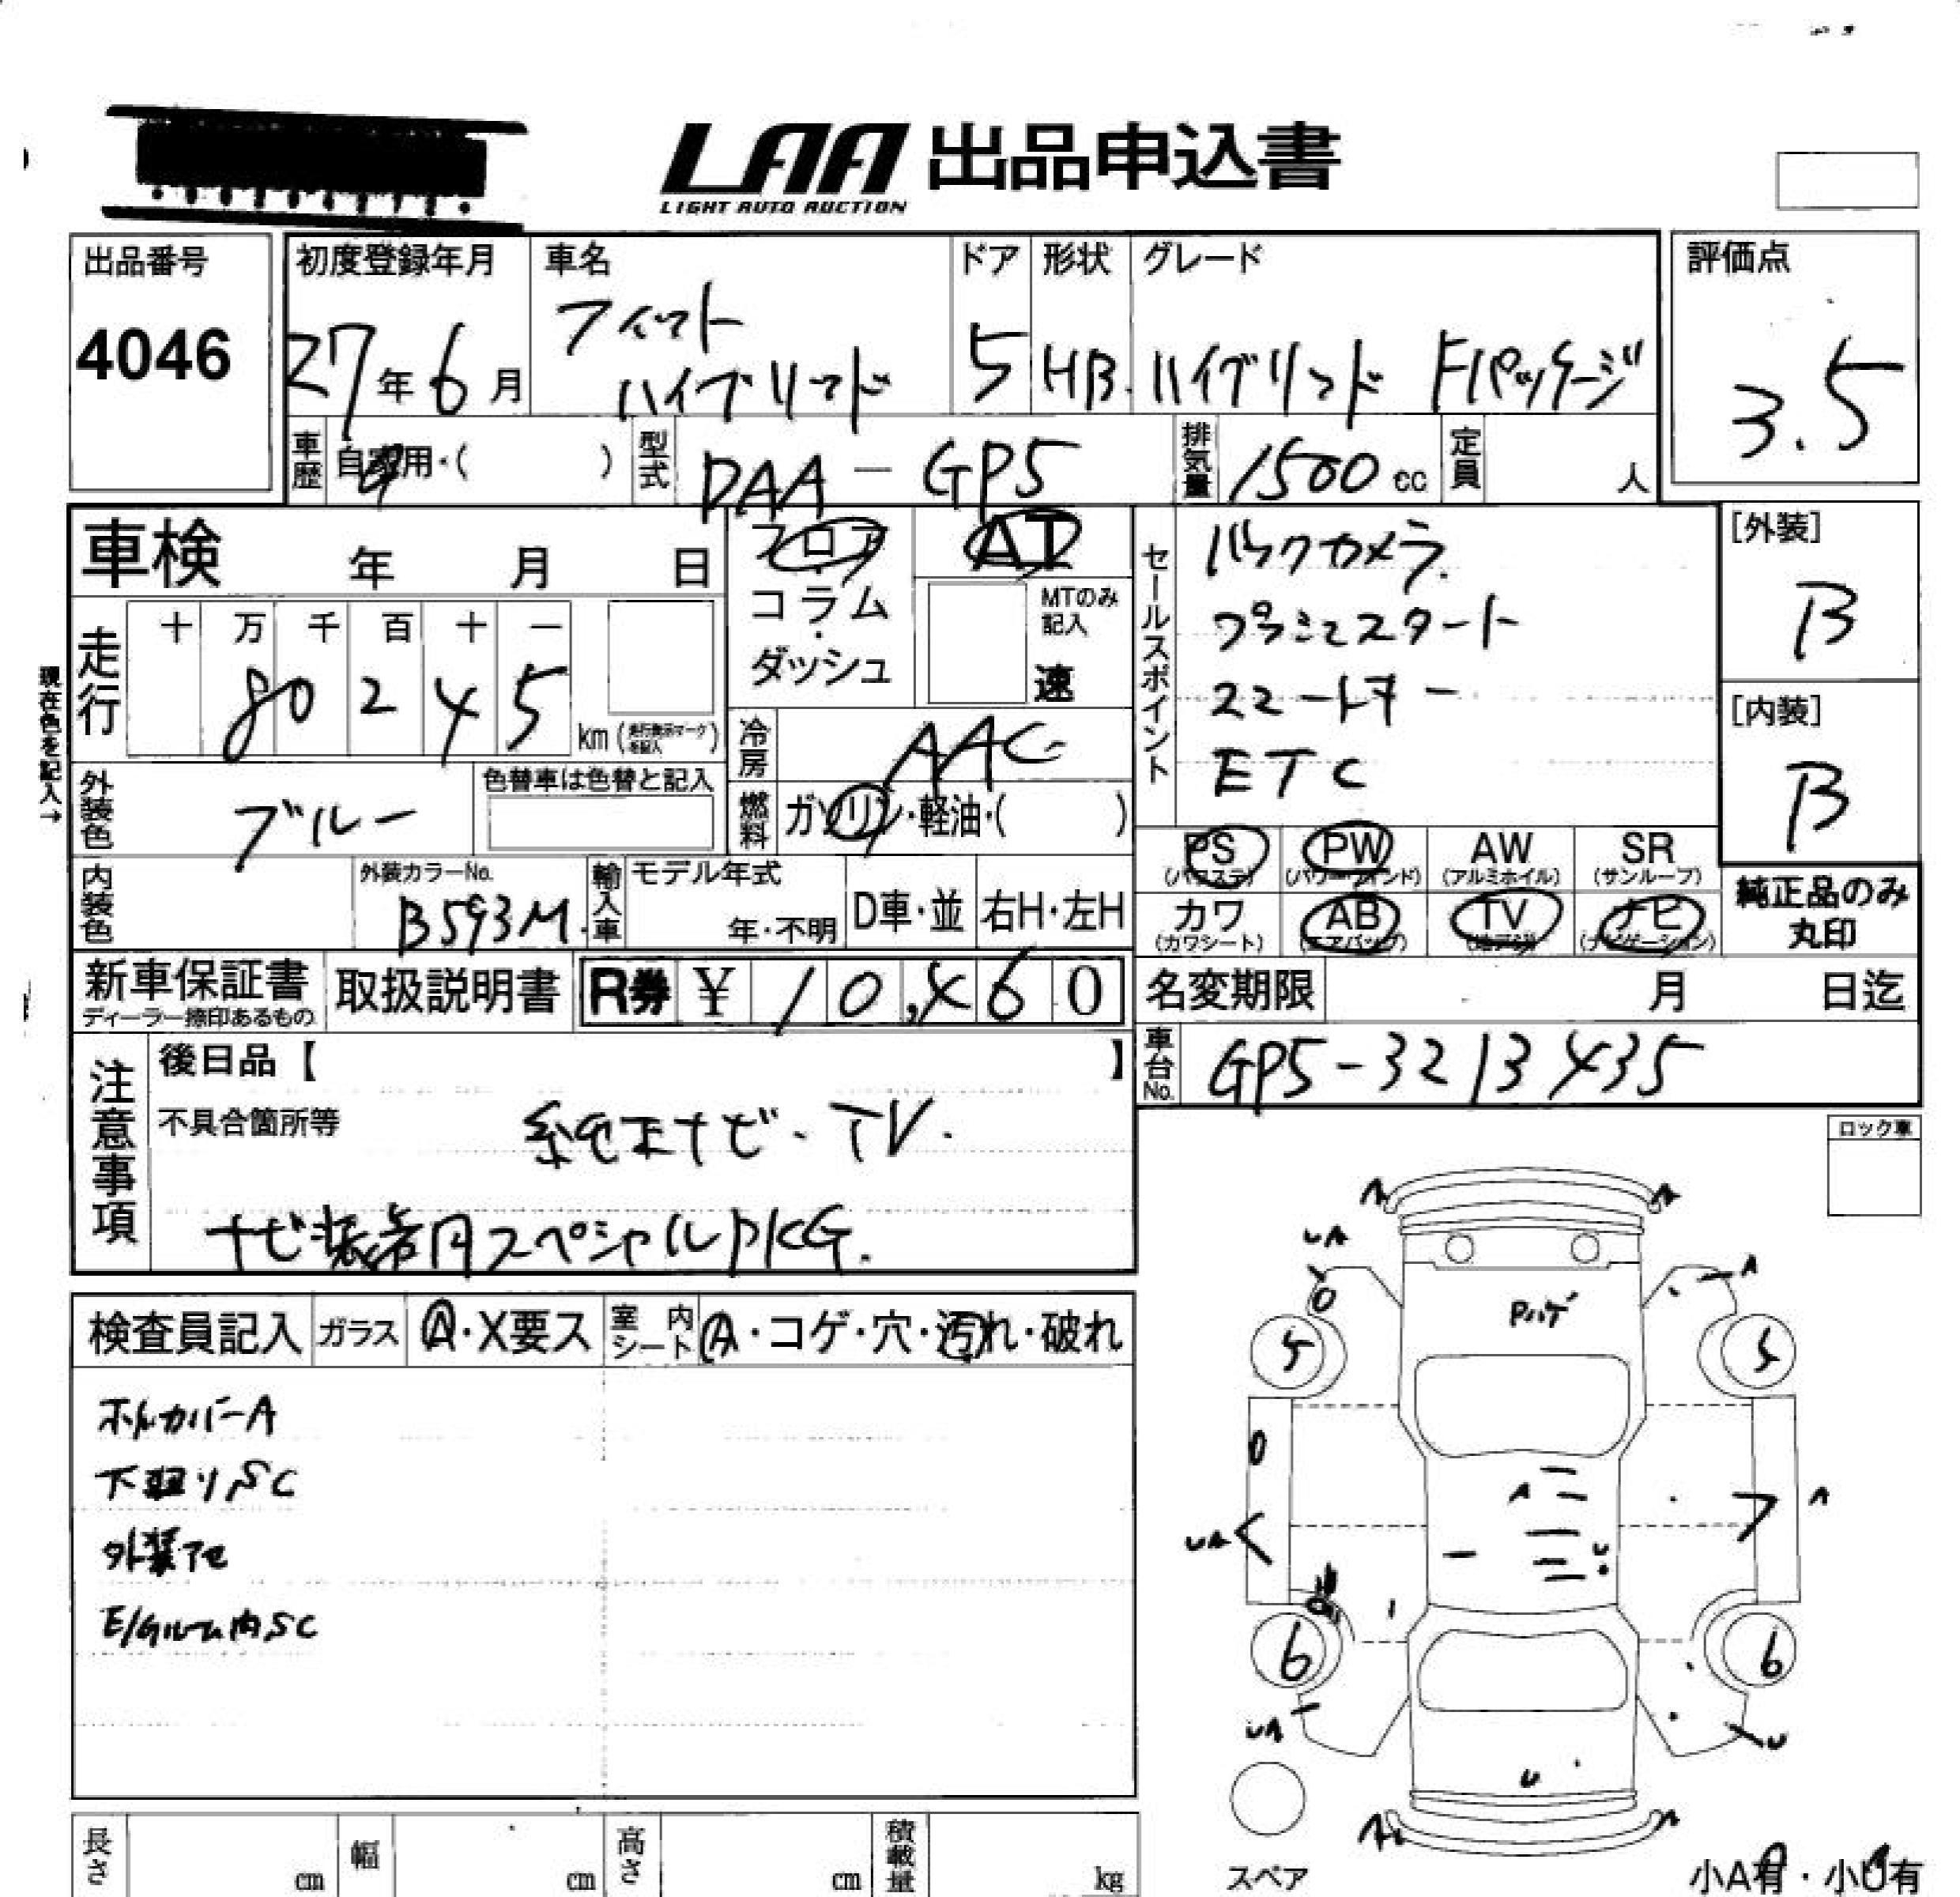 LAA 出品申込書
LIGHT AUTO AUCTION
出品番号
4046
初度登録年月
27年6月
車名
フィット
ハイブリッド
ドア
5
形状
HB.
グレード
ハイブリッド Fパッケージ
評価点
3.5
車歴
自家用・( )
型式
DAA-GP5
排気量
1500cc
定員
人
車検 年 月 日
フロア
・
コラム
・
ダッシュ
AT
MTのみ
記入
速
セールスポイント
バックカメラ.
プッシュスタート
スマートキー
ETC
[外装]
B
[内装]
B
現在色を記入→
走行
十 万 千 百 十 一
80245
km(走行表示マークを記入)
冷房
AAC
外装色
ブルー
色替車は色替と記入
燃料
ガソリン・軽油・( )
PS
(パワステ)
PW
(パワーウィンド)
AW
(アルミホイル)
SR
(サンルーフ)
カワ
(カワシート)
AB
(エアバッグ)
TV
(地デジ)
ナビ
(ナビゲーション)
純正品のみ
丸印
内装色
外装カラーNo.
B593M.
輸入車
モデル年式
年・不明
D車・並
右H・左H
新車保証書
ディーラー捺印あるもの
取扱説明書
R券 ¥ 10,460
名変期限 月 日迄
車台No.
GP5-3213435
注意事項
後日品【 】
不具合箇所等
純正ナビ・TV.
ナビ装着用スペシャルPKG.
ロック車
検査員記入
ガラス
A・X要ス
室内シート
A・コゲ・穴・汚れ・破れ
ホイルカバーA
下廻りSC
外装アセ
E/gルーム内SC
A
A
UA
A
Pハゲ
5
5
A
A
UA
U
6
6
UA
U
U
A
A
スペア
小A有・小U有
長さ
cm
幅
cm
高さ
cm
積載量
kg